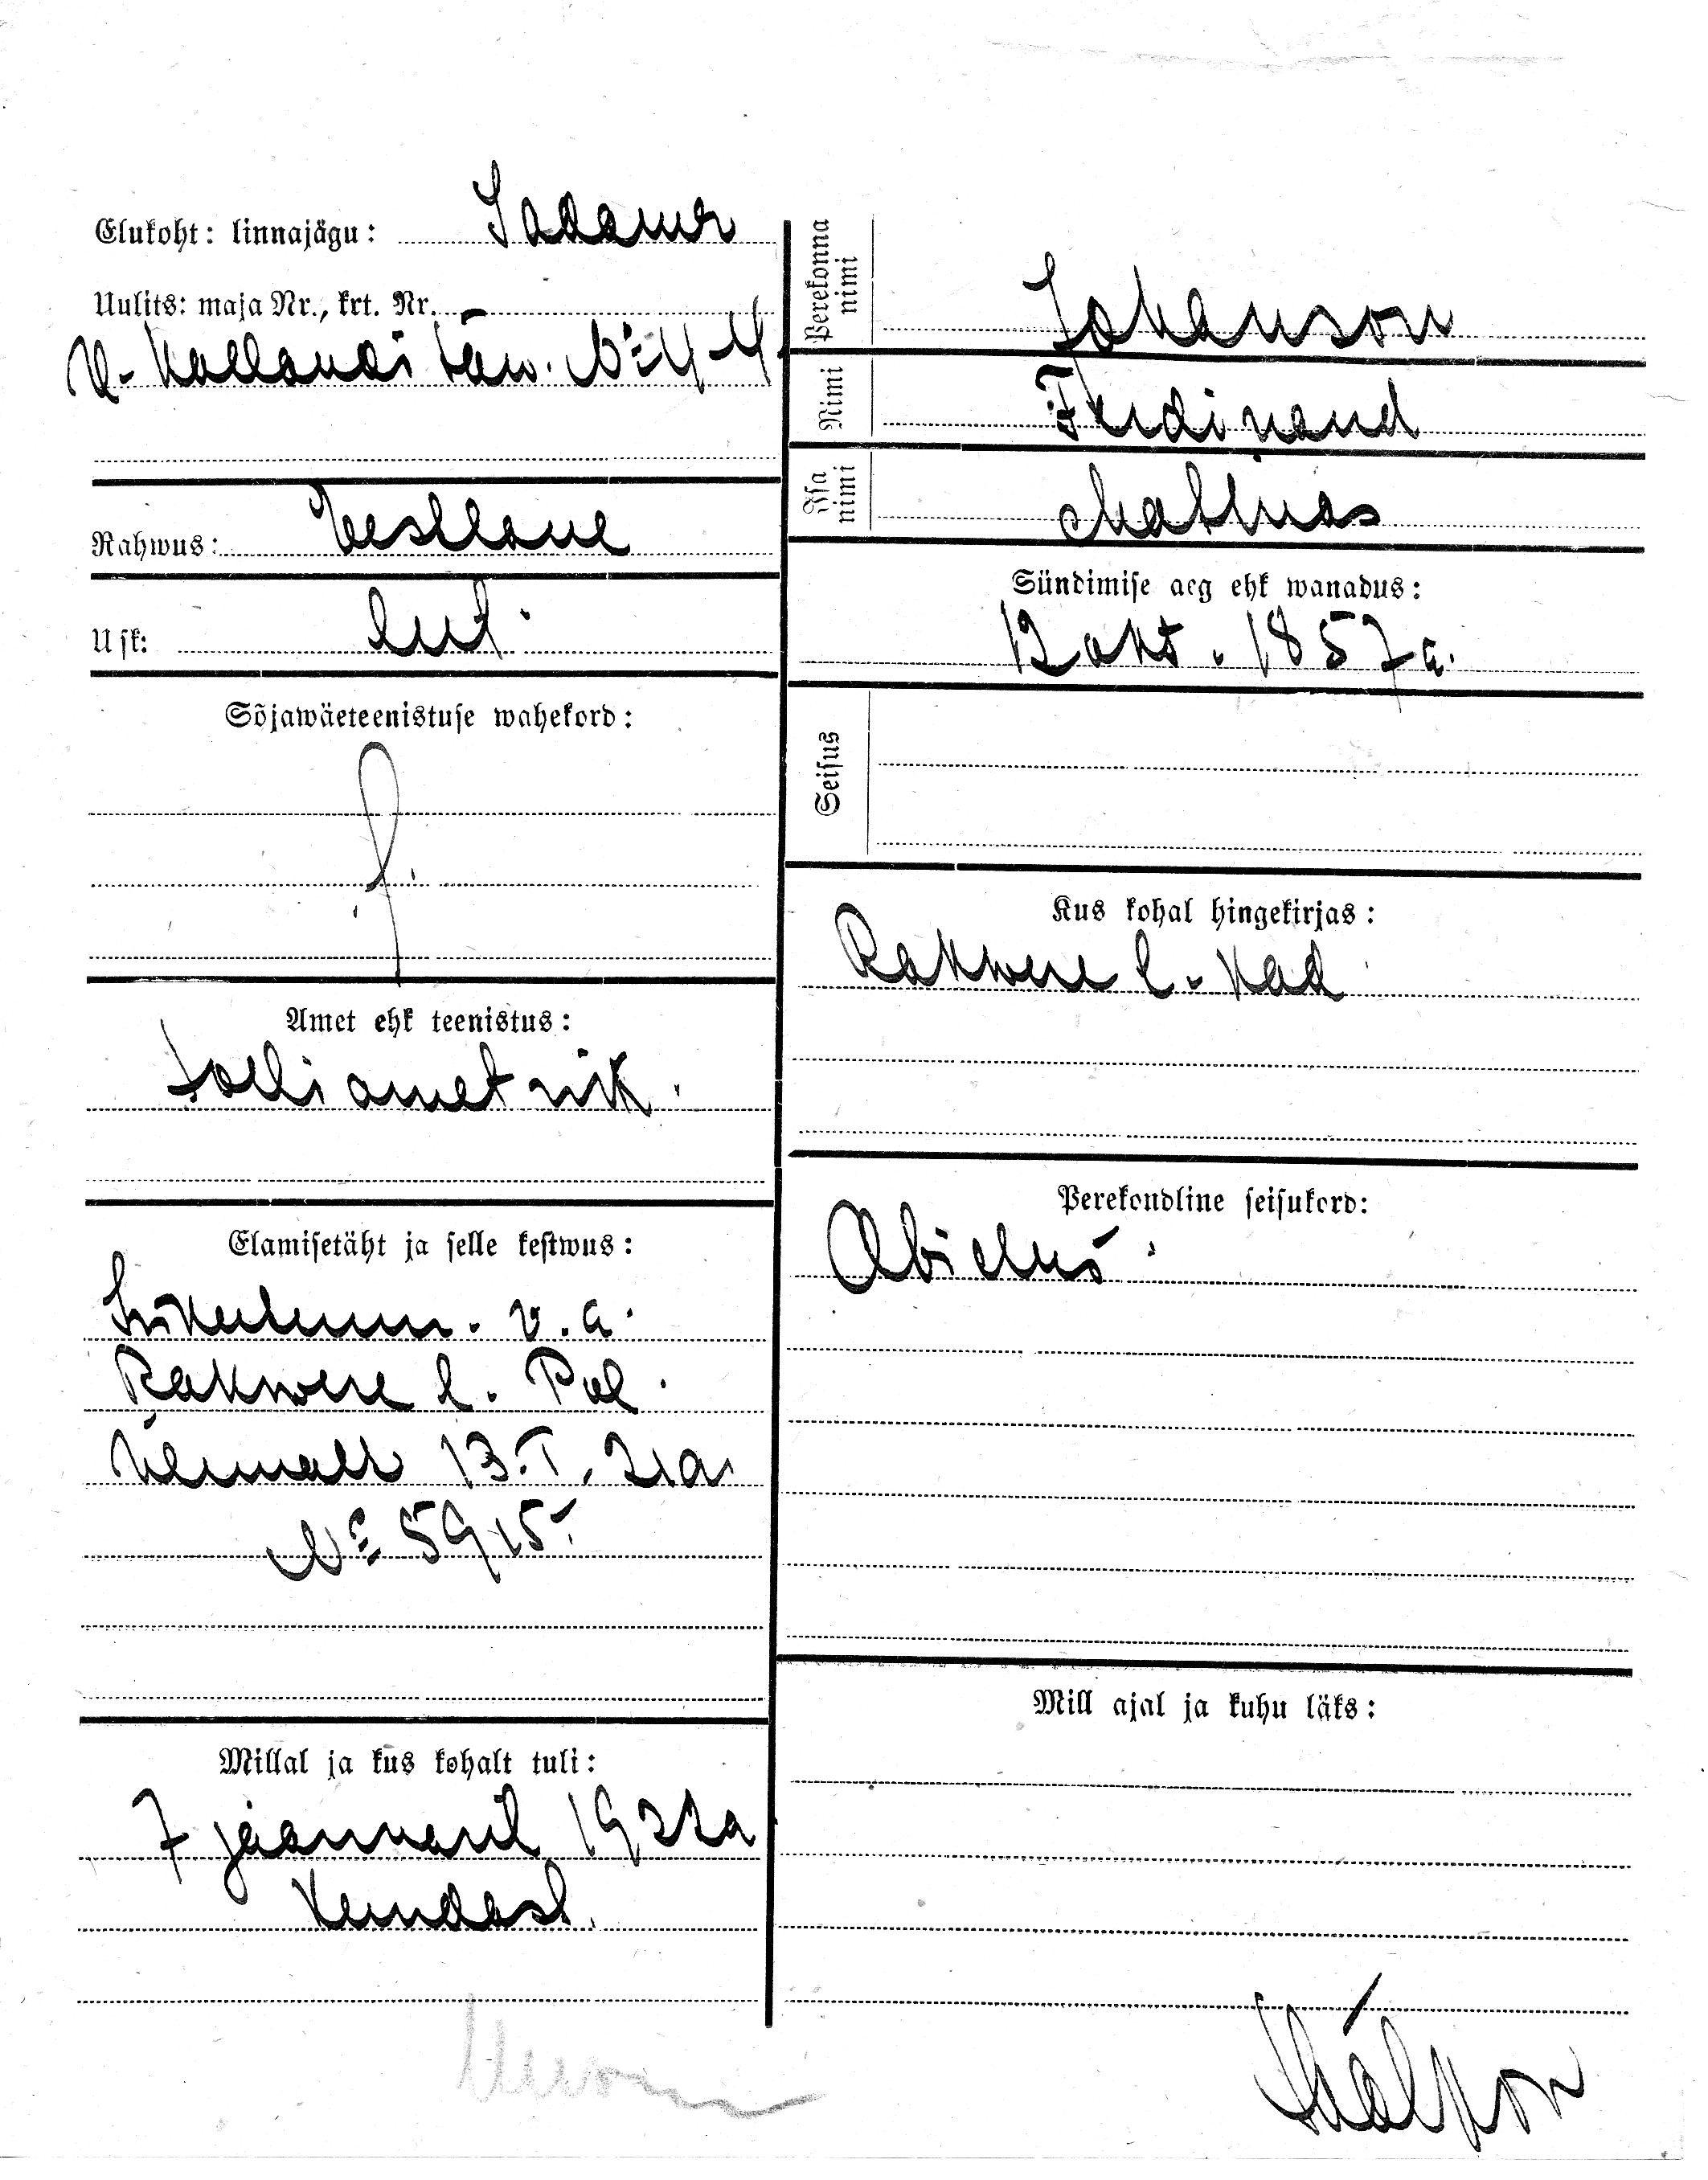 Elukoht: linnajägu: Sadama
Uulits: maja Nr., krt. Nr.
V-Kallandi tän. № 4-4
Rahwus: Eestlane
Usk: lut.
Sõjawäeteenistuse wahekord:
Amet ehk teenistus:
tolliametnik.
Elamisetäht ja selle kestwus:
Isikutunn. v. a.
Rakwere l. Pol.
Ülemalt 13.I.21a
№ 5915.
Millal ja kus kohalt tuli:
7 jaanuaril 1922a
Perekonna nimi
Johanson
Nimi
Ferdinand
Isa nimi
Mathias
Sündimise aeg ehk wanadus:
12 okt. 1857 a.
Seisus
Kus kohal hingekirjas:
Rakwere l. kod
Perekondline seisukord:
Abielus.
Mill ajal ja kuhu läks: